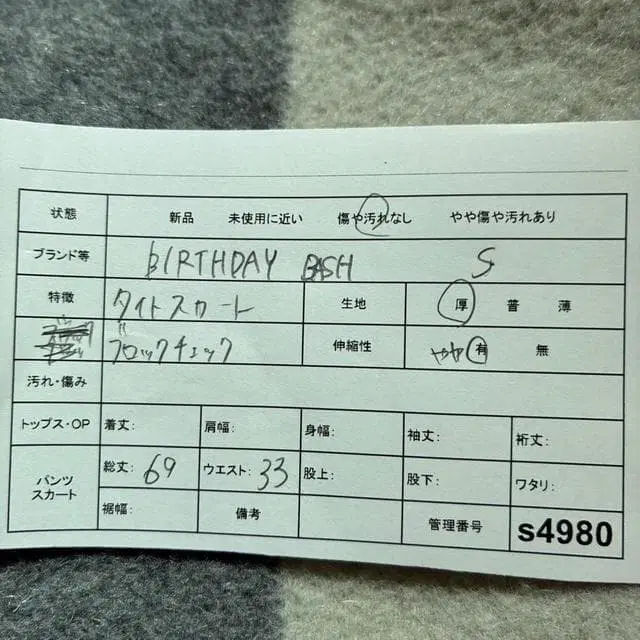 状態 新品 未使用に近い 傷や汚れなし やや傷や汚れあり
ブランド等 BIRTHDAY BASH S
特徴 タイトスカート 生地 厚 普 薄
ブロックチェック 伸縮性 やや有 無
汚れ・傷み
トップス・OP 着丈: 肩幅: 身幅: 袖丈: 裄丈:
パンツ スカート 総丈: 69 ウエスト: 33 股上: 股下: ワタリ:
裾幅: 備考 管理番号 s4980